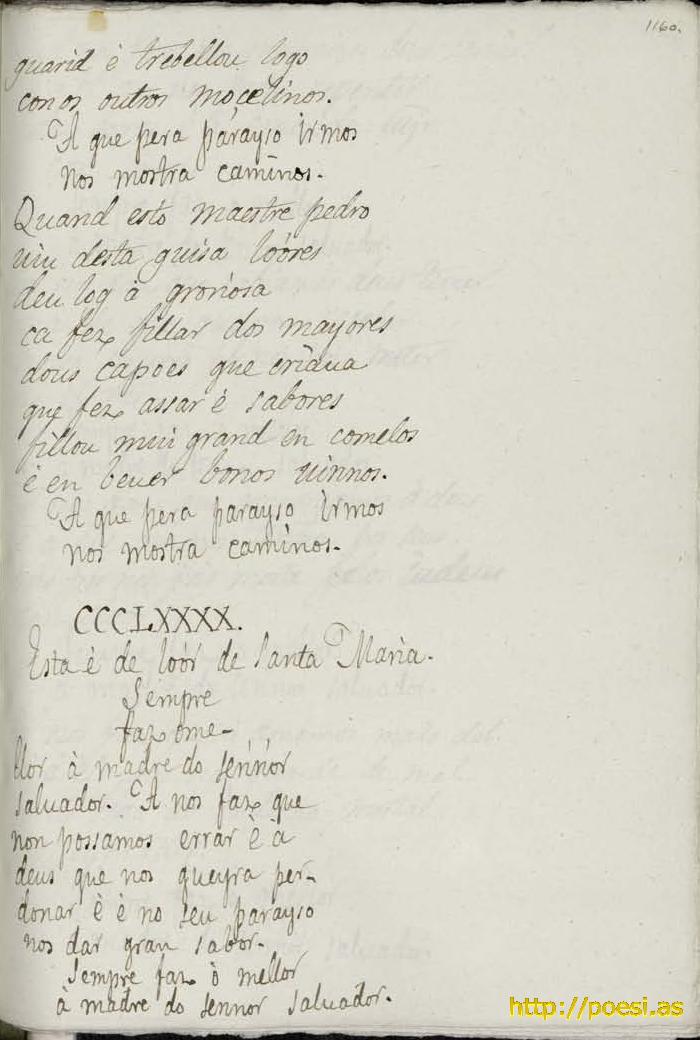 1160.
guarid è trebellou logo
con os outros moçelinos.
A que pera parayso irmos
nos mostra caminos.
Quand esto maestre pedro
uiu desta guisa loores
deu log à groriosa
ca fez fillar dos mayores
dous capoes que criaua
que fez assar è sabores
fillou mui grand en comelos
è en beuer bonos uinnos.
A que pera parayso irmos
nos mostra caminos.
CCCLXXXX.
Esta è de loor de Santa Maria.
Sempre
faz ome-
llor à madre do sennor
saluador. A nos faz que
non possamos errar è à
deus que nos queyra per-
donar è è no seu parayso
nos dar gran sabor.
Sempre faz o mellor
à madre do sennor saluador.
http://poesi.as